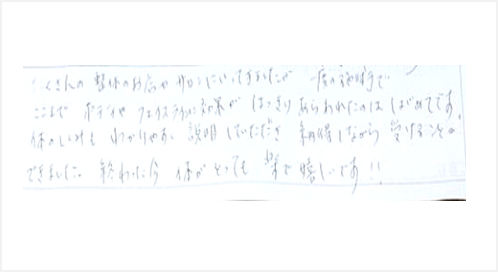 たくさんの 整体のお店や サロンにいってきましたが 一度の施術で
ここまで ボディや フェイスラインに効果が はっきり あらわれたのは はじめてです。
体のしくみも わかりやすく 説明していただき 納得しながら 受けることが
できました。終わった今 体が とっても 楽で 嬉しいです!!